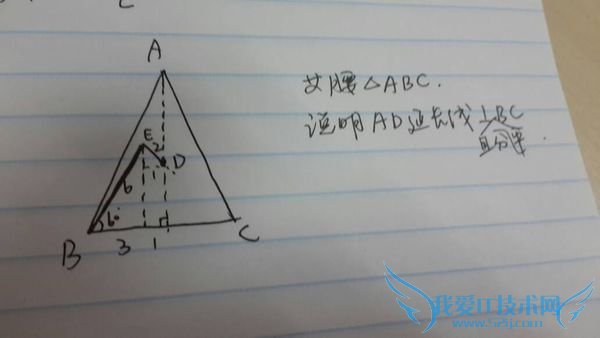 C
A
艾腰△ABC.
说明AD延长线⊥BC
且分平.
E
2
1
D
6
60°
B
3
1
C
我爱IT技术网
www.52ij.com